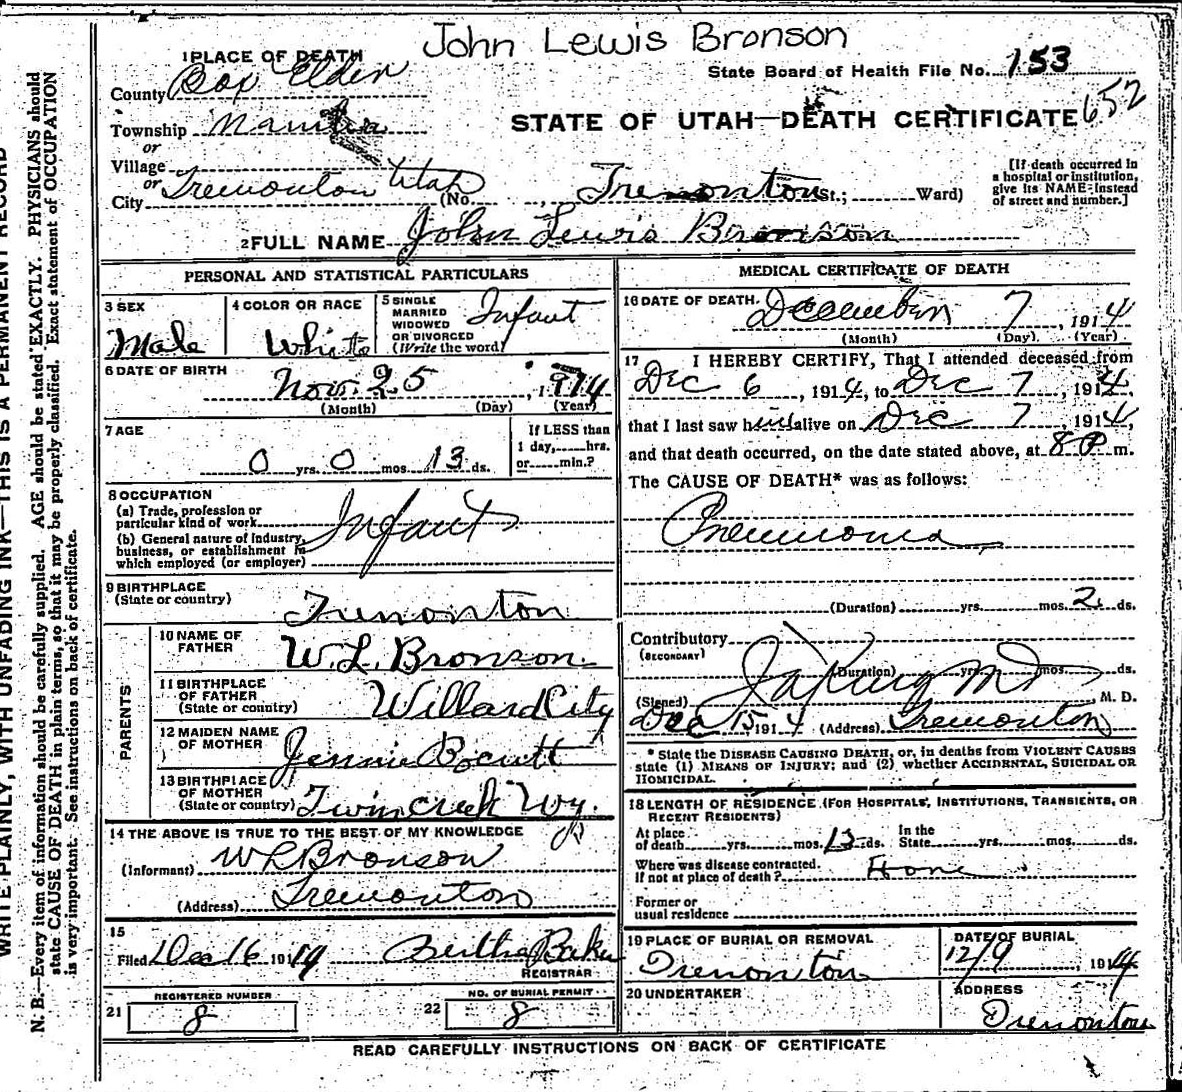 John Lewis Bronson
1 PLACE OF DEATH
State Board of Health File No. 153
County Box Elder
652
Township
STATE OF UTAH—DEATH CERTIFICATE
or
Village
or
City Tremonton Utah (No. Tremonton St.; Ward)
[If death occurred in a hospital or institution, give its NAME instead of street and number.]
2 FULL NAME John Lewis Bronson
PERSONAL AND STATISTICAL PARTICULARS
3 SEX
Male
4 COLOR OR RACE
White
5 SINGLE
MARRIED
WIDOWED
OR DIVORCED
(Write the word)
Infant
6 DATE OF BIRTH
Nov. 25, 1914
(Month) (Day) (Year)
7 AGE
If LESS than
1 day, hrs.
or min.?
0 yrs. 0 mos. 13 ds.
8 OCCUPATION
(a) Trade, profession or
particular kind of work
Infant
(b) General nature of industry,
business, or establishment in
which employed (or employer)
9 BIRTHPLACE
(State or country)
Tremonton
PARENTS
10 NAME OF
FATHER
W. L. Bronson
11 BIRTHPLACE
OF FATHER
(State or country)
Willard City
12 MAIDEN NAME
OF MOTHER
Jennie
13 BIRTHPLACE
OF MOTHER
(State or country)
Twin Creek Wy.
14 THE ABOVE IS TRUE TO THE BEST OF MY KNOWLEDGE
(Informant) W L Bronson
(Address) Tremonton
15
Filed Dec 16 1914 Bertha Baker
REGISTRAR
21 REGISTERED NUMBER
8
22 NO. OF BURIAL PERMIT
8
MEDICAL CERTIFICATE OF DEATH
16 DATE OF DEATH.
December 7, 1914
(Month) (Day) (Year)
17 I HEREBY CERTIFY, That I attended deceased from
Dec 6, 1914, to Dec 7, 1914,
that I last saw him alive on Dec 7, 1914,
and that death occurred, on the date stated above, at 8 P m.
The CAUSE OF DEATH* was as follows:
Pneumonia
(Duration) yrs. mos. 2 ds.
Contributory
(SECONDARY)
(Duration) yrs. mos. ds.
(Signed) M D M. D.
Dec 15 1914 (Address) Tremonton
* State the DISEASE CAUSING DEATH, or, in deaths from VIOLENT CAUSES
state (1) MEANS OF INJURY; and (2) whether ACCIDENTAL, SUICIDAL OR
HOMICIDAL.
18 LENGTH OF RESIDENCE (FOR HOSPITALS, INSTITUTIONS, TRANSIENTS, OR
RECENT RESIDENTS)
At place
of death yrs. mos. 13 ds.
In the
State yrs. mos. ds.
Where was disease contracted.
If not at place of death? Home
Former or
usual residence
19 PLACE OF BURIAL OR REMOVAL
Tremonton
DATE OF BURIAL
12/9, 1914
20 UNDERTAKER
ADDRESS
Tremonton
READ CAREFULLY INSTRUCTIONS ON BACK OF CERTIFICATE
WRITE PLAINLY, WITH UNFADING INK—THIS IS A PERMANENT RECORD
N. B.—Every item of information should be carefully supplied. AGE should be stated EXACTLY. PHYSICIANS should
state CAUSE OF DEATH in plain terms, so that it may be properly classified. Exact statement of OCCUPATION
is very important. See instructions on back of certificate.